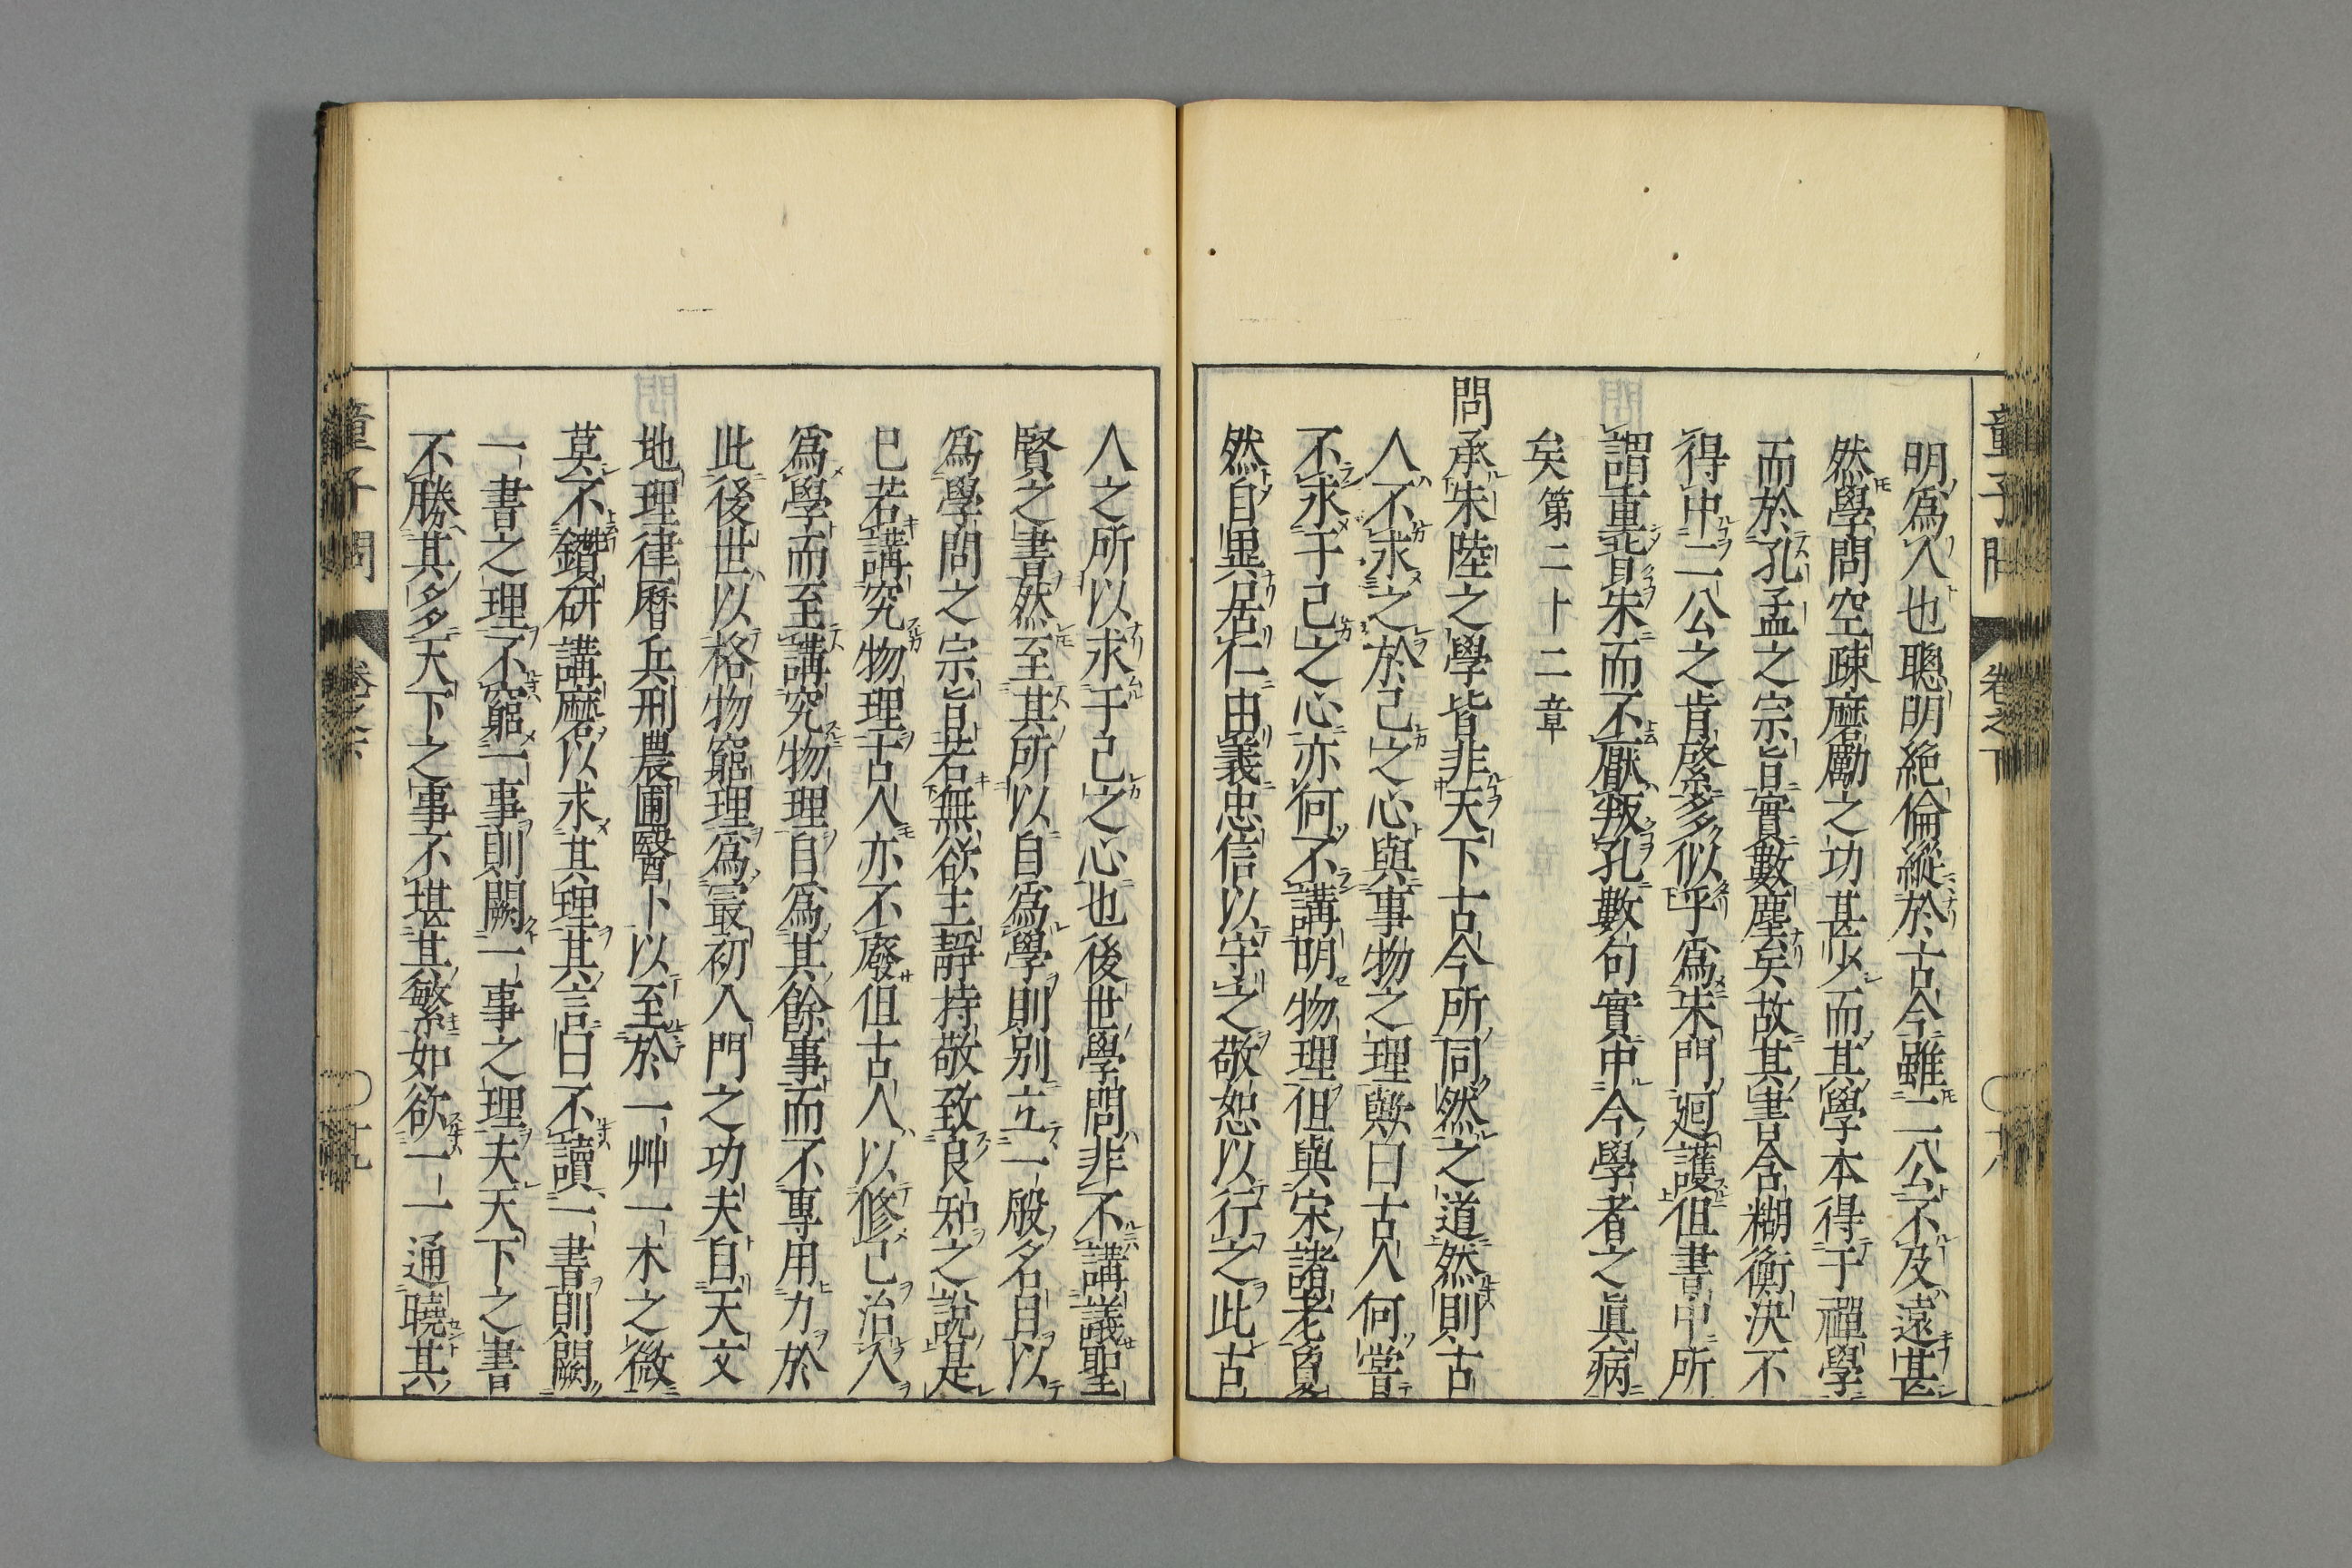 童子問 卷之下 〇十八
明爲人也聰明絶倫縱於古今雖二公不及遠甚
然學問空疎磨勵之功甚少而其學本得于禪學
而於孔孟之宗旨實數塵矣故其書含糊衡決不
得中二公之肯綮多似乎爲朱門廻護但書中所
謂重背朱而不厭叛孔數句實中今學者之眞病
矣第二十二章
問承朱陸之學皆非天下古今所同然之道然則古
人不求之於己之心與事物之理歟曰古人何嘗
不求于己之心亦何不講明物理但與宋諸老夐
然自異居仁由義忠信以守之敬恕以行之此古
人之所以求于己之心也後世學問非不講議聖
賢之書然至其所以自爲學則別立一般名目以
爲學問之宗旨若無欲主靜持敬致良知之說是
已若講究物理古人亦不廢但古人以修己治人
爲學而至講究物理自爲其餘事而不專用力於
此後世以格物窮理爲最初入門之功夫自天文
地理律曆兵刑農圃醫卜以至於一艸一木之微
莫不鑽研講磨以求其理其言曰不讀一書則闕
一書之理不窮一事則闕一事之理夫天下之書
不勝其多天下之事不堪其繁如欲一一通曉其
童子問 卷之下 〇十九